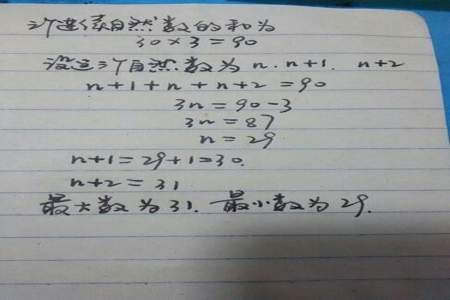 三个连续自然数的和为
30×3=90
设这三个自然数为 n. n+1. n+2
n+1+n+n+2=90
3n=90-3
3n=87
n=29
n+1=29+1=30.
n+2=31
最大数为31. 最小数为29.